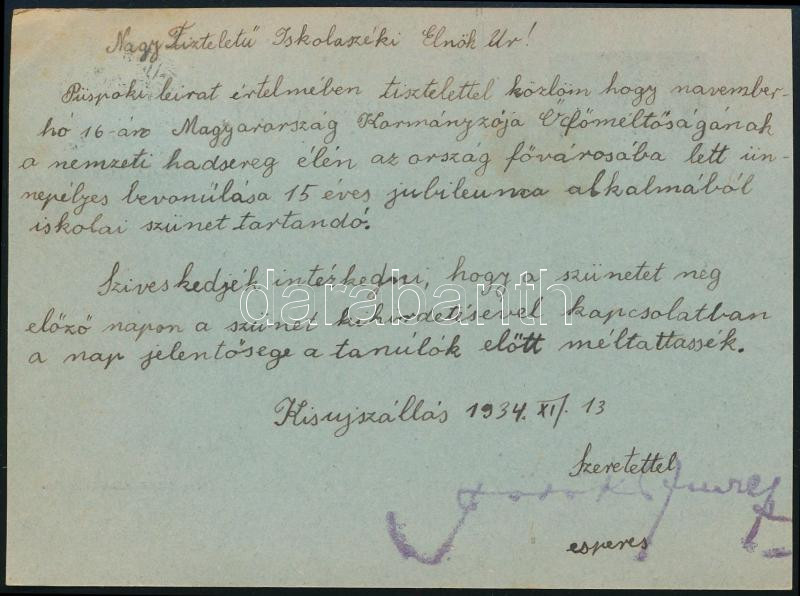 Nagy Tiszteletű Iskolaszéki Elnök Ur!
Püspoki leirat értelmében tisztelettel közlöm hogy november-
hó 16-án Magyarország Kormányzója Őfőméltóságának
a nemzeti hadsereg élén az ország fővárosába lett ün-
nepélyes bevonúlása 15 éves jubileuma alkalmából
iskolai szünet tartandó.
Sziveskedjék intézkedni, hogy a szünetet meg
előző napon a szünet kihirdetésével kapcsolatban
a nap jelentősege a tanúlók előtt méltattassék.
darabanth
Kisujszállás 1934. XI/. 13
Szeretettel
esperes